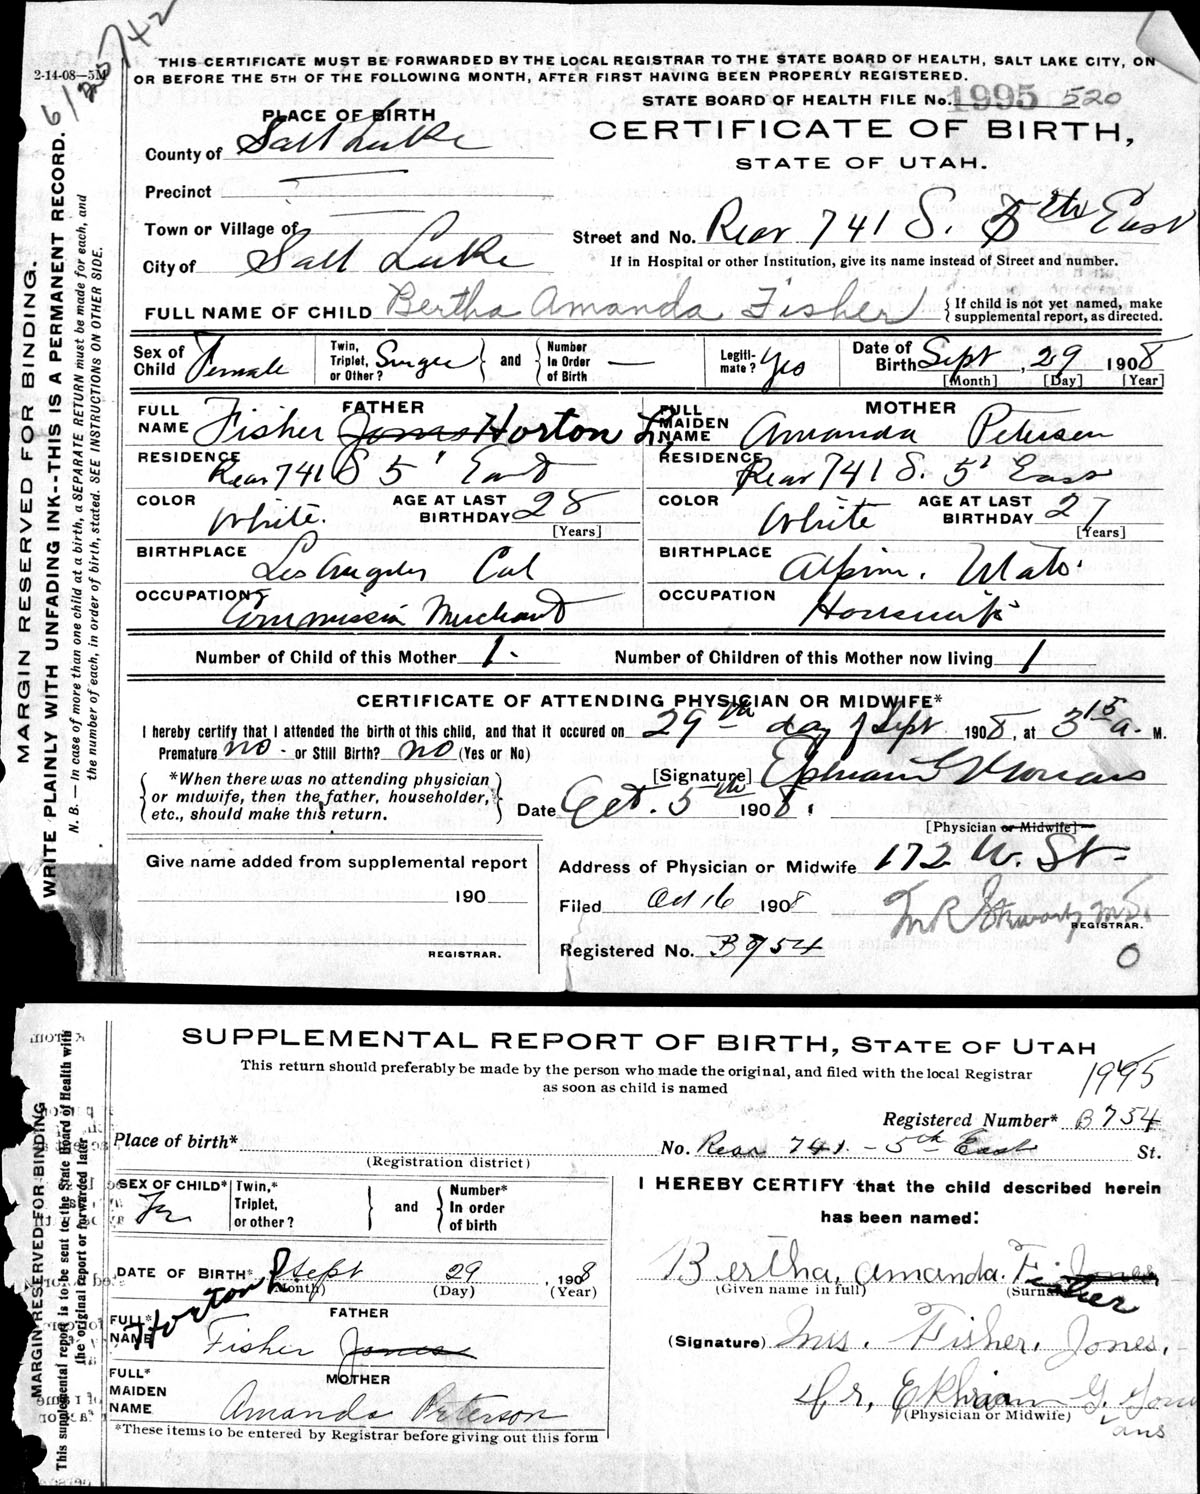 6/20/42
2-14-08—5M
THIS CERTIFICATE MUST BE FORWARDED BY THE LOCAL REGISTRAR TO THE STATE BOARD OF HEALTH, SALT LAKE CITY, ON
OR BEFORE THE 5TH OF THE FOLLOWING MONTH, AFTER FIRST HAVING BEEN PROPERLY REGISTERED.
STATE BOARD OF HEALTH FILE No. 1995 520
PLACE OF BIRTH
CERTIFICATE OF BIRTH,
STATE OF UTAH.
County of Salt Lake
Precinct
Town or Village of
Street and No. Rear 741 S. 5th East
City of Salt Lake
If in Hospital or other Institution, give its name instead of Street and number.
FULL NAME OF CHILD Bertha Amanda Fisher
If child is not yet named, make
supplemental report, as directed.
Sex of Child Female
Twin, Triplet, or Other? Single and Number In Order of Birth —
Legiti-mate? Yes
Date of Birth Sept 29 1908
[Month] [Day] [Year]
FATHER
FULL NAME Fisher Jones Horton L.
RESIDENCE Rear 741 S 5' East
COLOR White. AGE AT LAST BIRTHDAY 28
[Years]
BIRTHPLACE Los Angeles Cal
OCCUPATION Commission Merchant
MOTHER
FULL MAIDEN NAME Amanda Petersen
RESIDENCE Rear 741 S. 5' East
COLOR White AGE AT LAST BIRTHDAY 27
[Years]
BIRTHPLACE Alpine, Utah.
OCCUPATION Housewife
Number of Child of this Mother 1. Number of Children of this Mother now living 1
CERTIFICATE OF ATTENDING PHYSICIAN OR MIDWIFE*
I hereby certify that I attended the birth ot this child, and that it occured on 29th day of Sept 1908, at 3 15 a. M.
Premature no - or Still Birth? no (Yes or No)
*When there was no attending physician
or midwife, then the father, householder,
etc., should make this return.
[Signature]
Date Oct. 5th 1908.
[Physician or Midwife]
Give name added from supplemental report
190
REGISTRAR.
Address of Physician or Midwife 172 W. St-
Filed Oct 16 1908
REGISTRAR.
Registered No. B754
0
MARGIN RESERVED FOR BINDING.
WRITE PLAINLY WITH UNFADING INK--THIS IS A PERMANENT RECORD.
N. B. — In case of more than one child at a birth, a SEPARATE RETURN must be made for each, and
the number of each, in order of birth, stated. SEE INSTRUCTIONS ON OTHER SIDE.
SUPPLEMENTAL REPORT OF BIRTH, STATE OF UTAH
This return should preferably be made by the person who made the original, and filed with the local Registrar
as soon as child is named
1995
Registered Number* B754
Place of birth*
(Registration district)
No. Rear 741. - 5th East St.
SEX OF CHILD*
Twin,* Triplet, or other? and Number* In order of birth
I HEREBY CERTIFY that the child described herein
has been named:
DATE OF BIRTH* Sept 29, 1908
(Month) (Day) (Year)
Bertha, Amanda. Fisher Jones
(Given name in full) (Surname)
FATHER
FULL* NAME Horton L Fisher Jones
(Signature) Mrs. Fisher, Jones,
MOTHER
FULL* MAIDEN NAME Amanda Peterson
(Physician or Midwife)
*These items to be entered by Registrar before giving out this form
MARGIN RESERVED FOR BINDING
This supplemental report is to be sent to the State Board of Health with
the original report or forwarded later